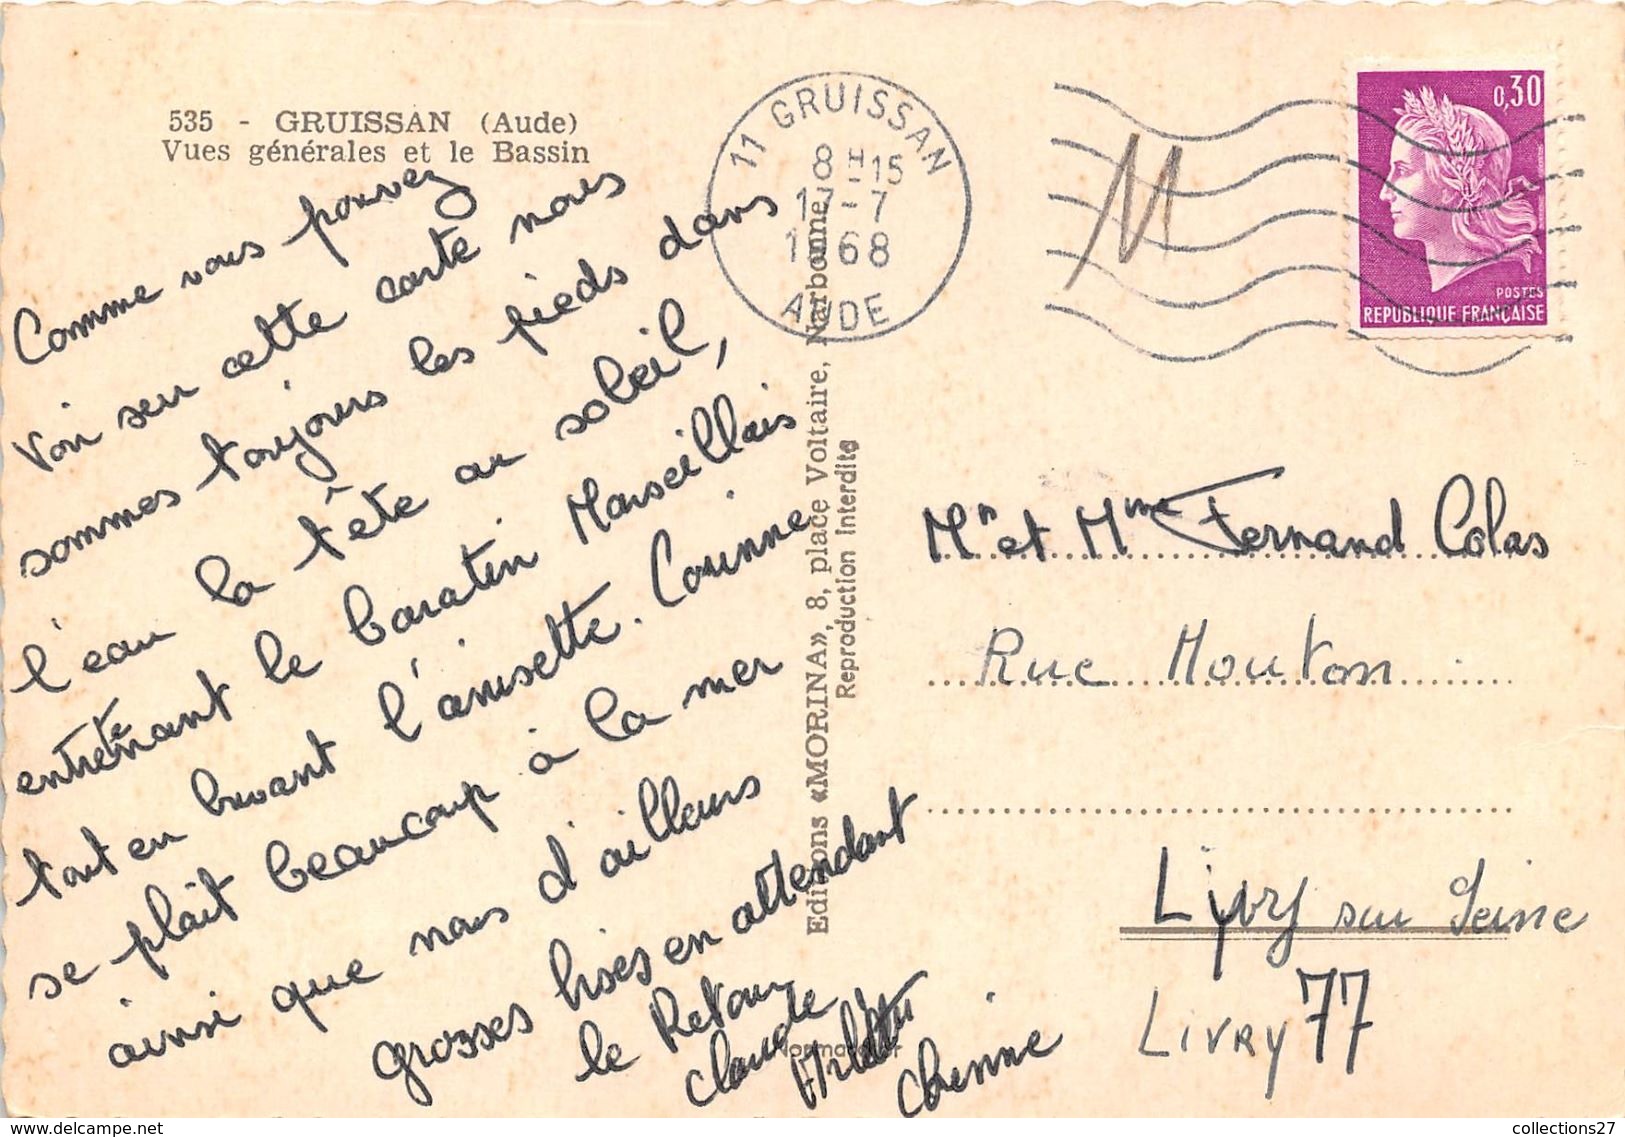 535 - GRUISSAN (Aude)
Vues générales et le Bassin
Comme vous pouvez
voir sur cette carte nous
sommes toujours les pieds dans
l'eau la tête au soleil,
entretenant le baratin Marseillais
tout en buvant l'anisette. Corinne
se plait beaucoup à la mer
ainsi que nous d'ailleurs
grosses bises en attendant
le Retour
Claude
Arlette
Corinne
11 GRUISSAN
8H-15
17-7
1968
AUDE
Editions «MORINA», 8, place Voltaire, Narbonne
Reproduction Interdite
0,30
POSTES
REPUBLIQUE FRANÇAISE
Mr et Mme Fernand Colas
Rue Mouton
Livry sur Seine
LIVRY 77
collections27